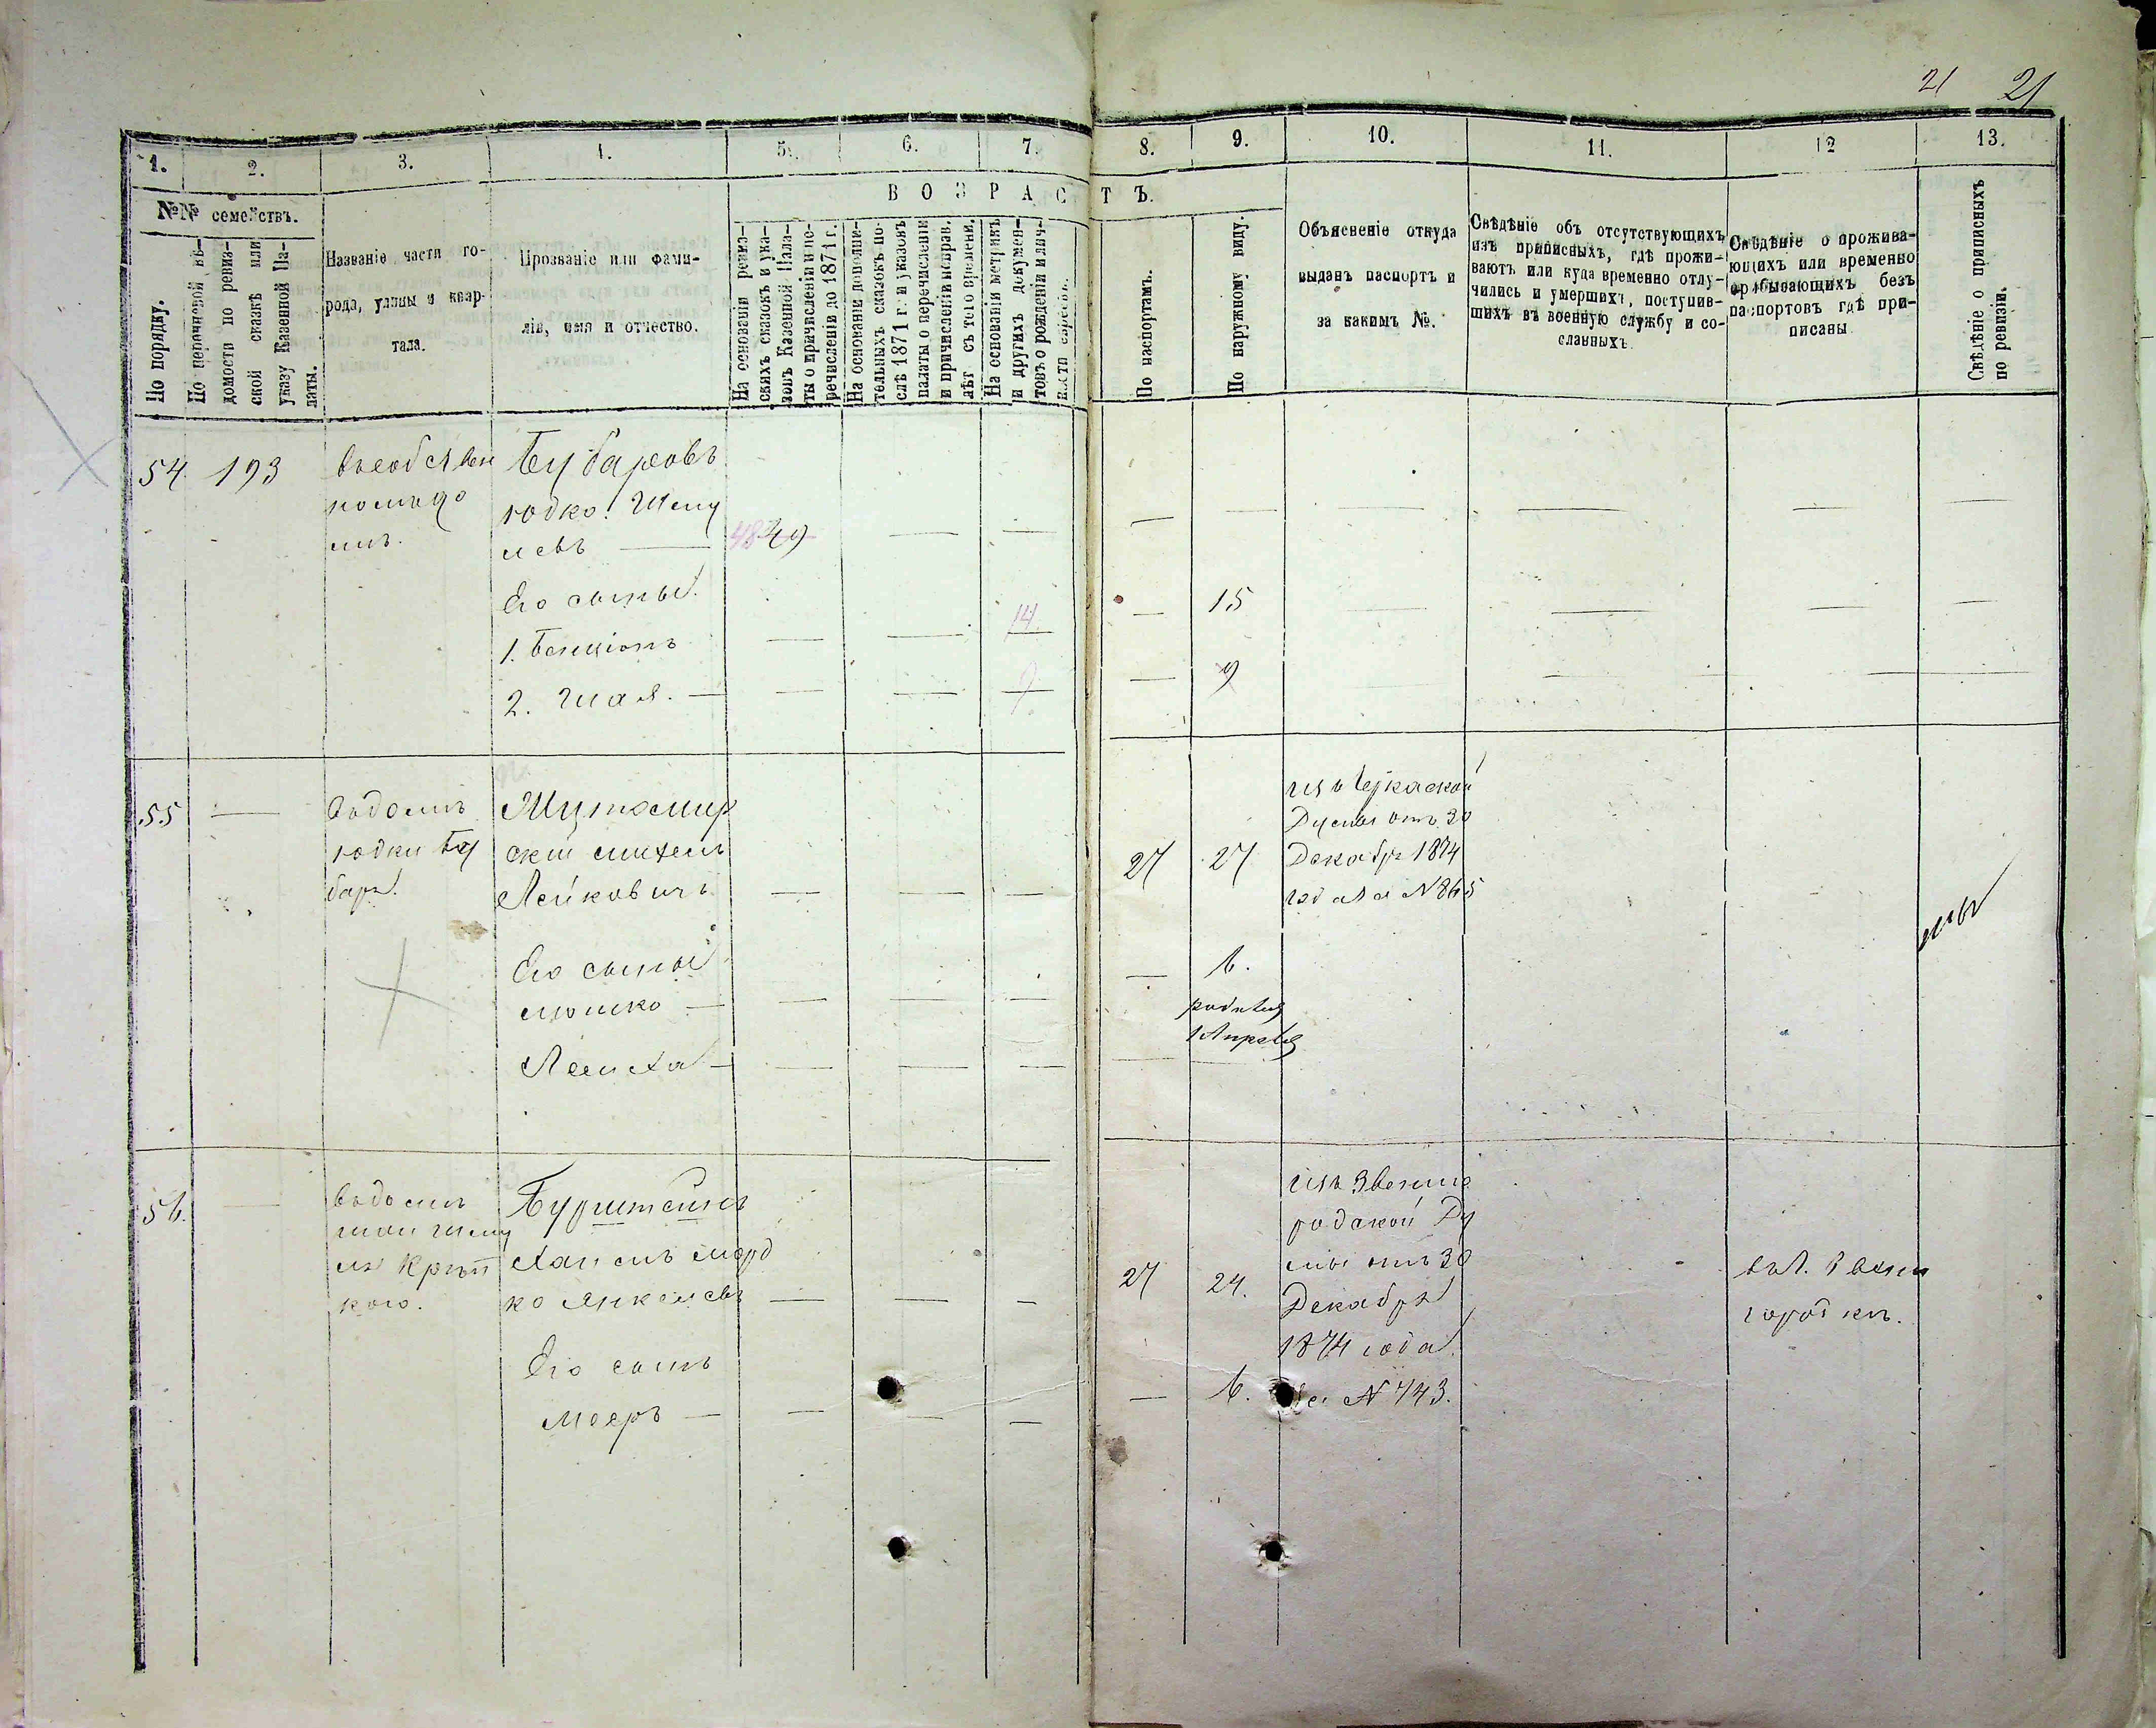 21 21
1. 2. 3. 4. 5. 6. 7. 8. 9. 10. 11. 12 13.
№№ семействъ.
По порядку.
По перечневой вѣ-
домости по ревиз-
ской сказкѣ или
указу Казенной Па-
латы.
Названіе части го-
рода, улицы и квар-
тала.
Прозваніе или фами-
лія, имя и отчество.
ВОЗРАСТЪ.
На основаніи ревиз-
скихъ сказокъ и ука-
зовъ Казенной Пала-
ты о причисленіи и пе-
речисленіи до 1871 г.
На основаніи дополни-
тельныхъ сказокъ по-
слѣ 1871 г. и указовъ
палаты о перечисленіи
и причисленіи исправ.
лѣт съ того времени.
На основаніи метрикъ
и другихъ докумен-
товъ о рожденіи и лич-
По паспортамъ.
По наружному виду.
Объясненіе откуда
выданъ паспортъ и
за какимъ №.
Свѣдѣніе объ отсутствующихъ
изъ приписныхъ, гдѣ прожи-
ваютъ или куда временно отлу-
чились и умершихъ, поступив-
шихъ въ военную службу и со-
сланныхъ.
Свѣдѣніе о прожива-
ющихъ или временно
прибывающихъ безъ
паспортовъ гдѣ при-
писаны
Свѣдѣніе о приписныхъ
по ревизіи.
54. 193
въсобствен
номъ до
мѣ.
Бубаровъ
Юдко Шму
левъ — 48 49 — —
Его сыны.
1. Бенціонъ — — 14. — 15
2. Шая. — — — 9 — 9
55 —
Въ домѣ
Юдки Бу
бара.
Житомир
скій Михель
Лейковичъ — — — 27 27
изъ Черкаской
Думы отъ 30
Декабря 1874
года за N 865
Его сыны
Мошко — — — — — 6.
родился
1 Апреля
Лейха — — — —
56. —
Въ домѣ
Шмu
кого.
Бурштейнъ
Хаимъ Морд
ко Янкелевъ — — — 27 24.
изъ Звениго
родской Ду
мы отъ 30
Декабря
1874 года.
за N 743.
въ г. Звени
городкѣ.
Его сынъ
Мееръ — — — — — 6.